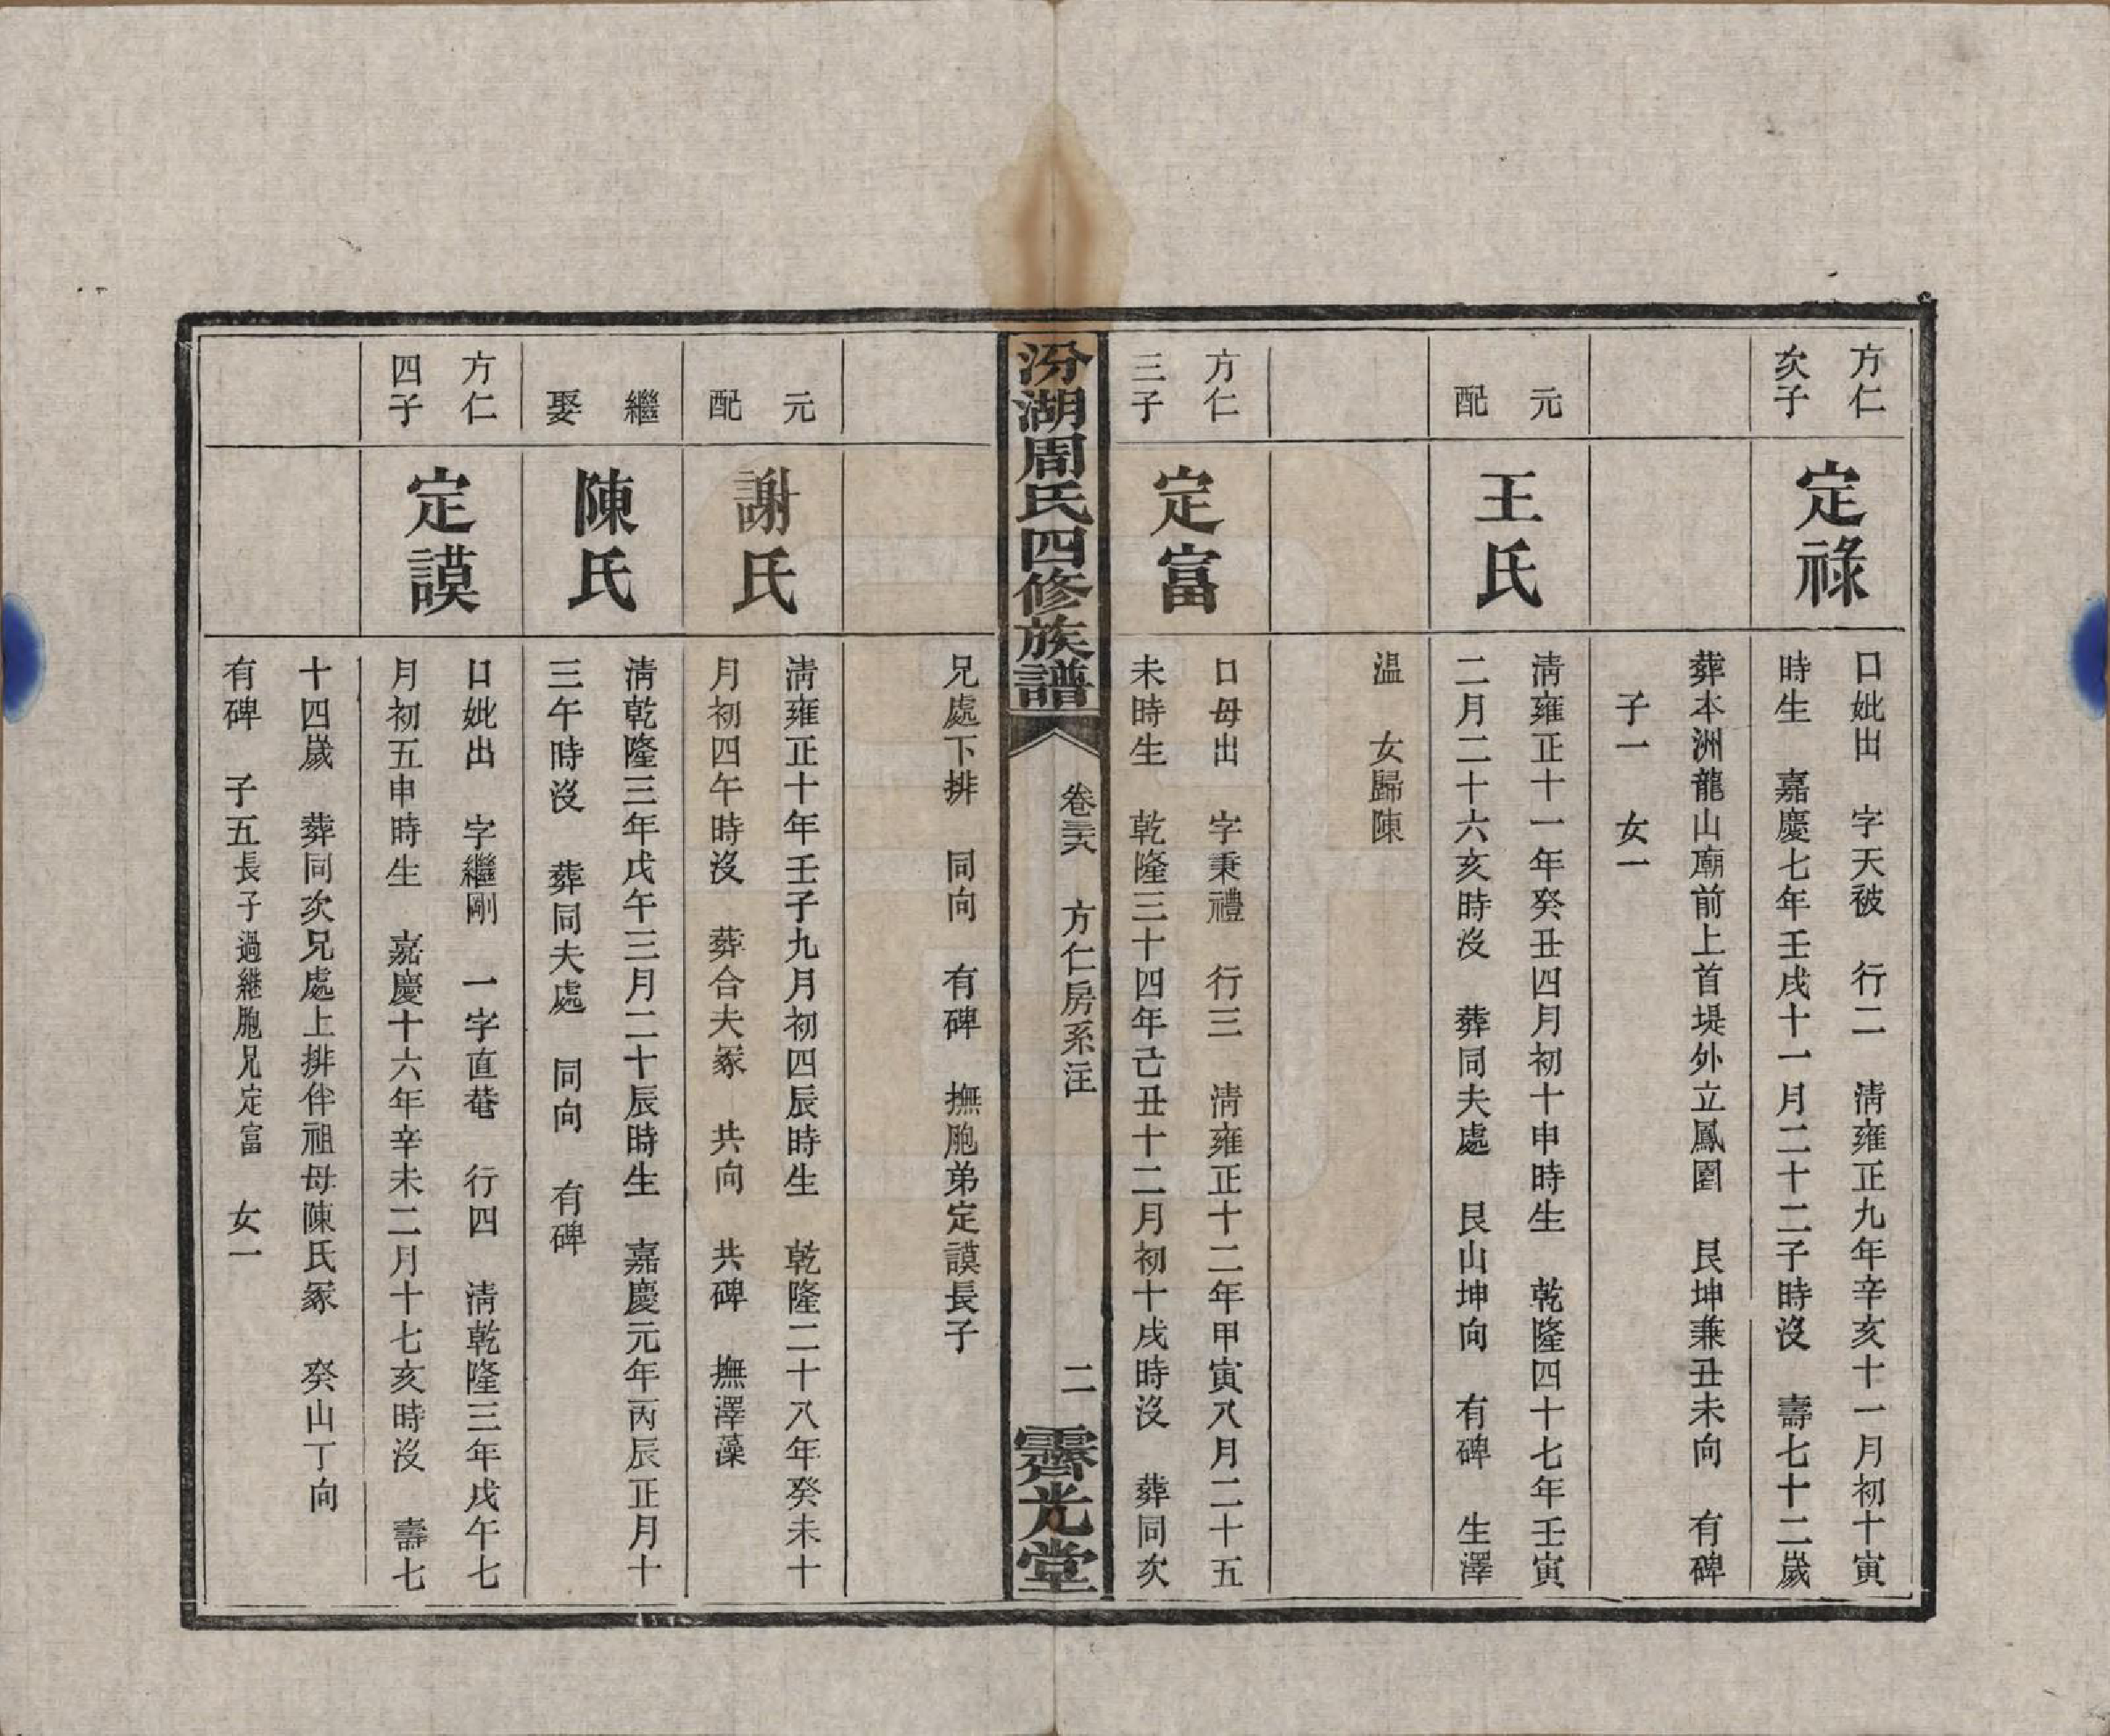 方仁
次子
定祿
口妣出　字天被　行二　清雍正九年辛亥十一月初十寅
時生　嘉慶七年壬戌十一月二十二子時沒　壽七十二歲
葬本洲龍山廟前上首堤外立鳳圍　艮坤兼丑未向　有碑
子一　女一
元
配
王氏
清雍正十一年癸丑四月初十申時生　乾隆四十七年壬寅
二月二十六亥時沒　葬同夫處　艮山坤向　有碑　生澤
温　女歸陳
方仁
三子
定富
口母出　字秉禮　行三　清雍正十二年甲寅八月二十五
未時生　乾隆三十四年己丑十二月初十戌時沒　葬同次
汾湖周氏四修族譜
卷三六　方仁房系注
二
霽光堂
兄處下排　同向　有碑　撫胞弟定謨長子
元
配
謝氏
清雍正十年壬子九月初四辰時生　乾隆二十八年癸未十
月初四午時沒　葬合夫冢　共向　共碑　撫澤藻
繼
娶
陳氏
清乾隆三年戊午三月二十辰時生　嘉慶元年丙辰正月十
三午時沒　葬同夫處　同向　有碑
方仁
四子
定謨
口妣出　字繼剛　一字直菴　行四　清乾隆三年戊午七
月初五申時生　嘉慶十六年辛未二月十七亥時沒　壽七
十四歲　葬同次兄處上排伴祖母陳氏冢　癸山丁向
有碑　子五長子過継胞兄定富　女一